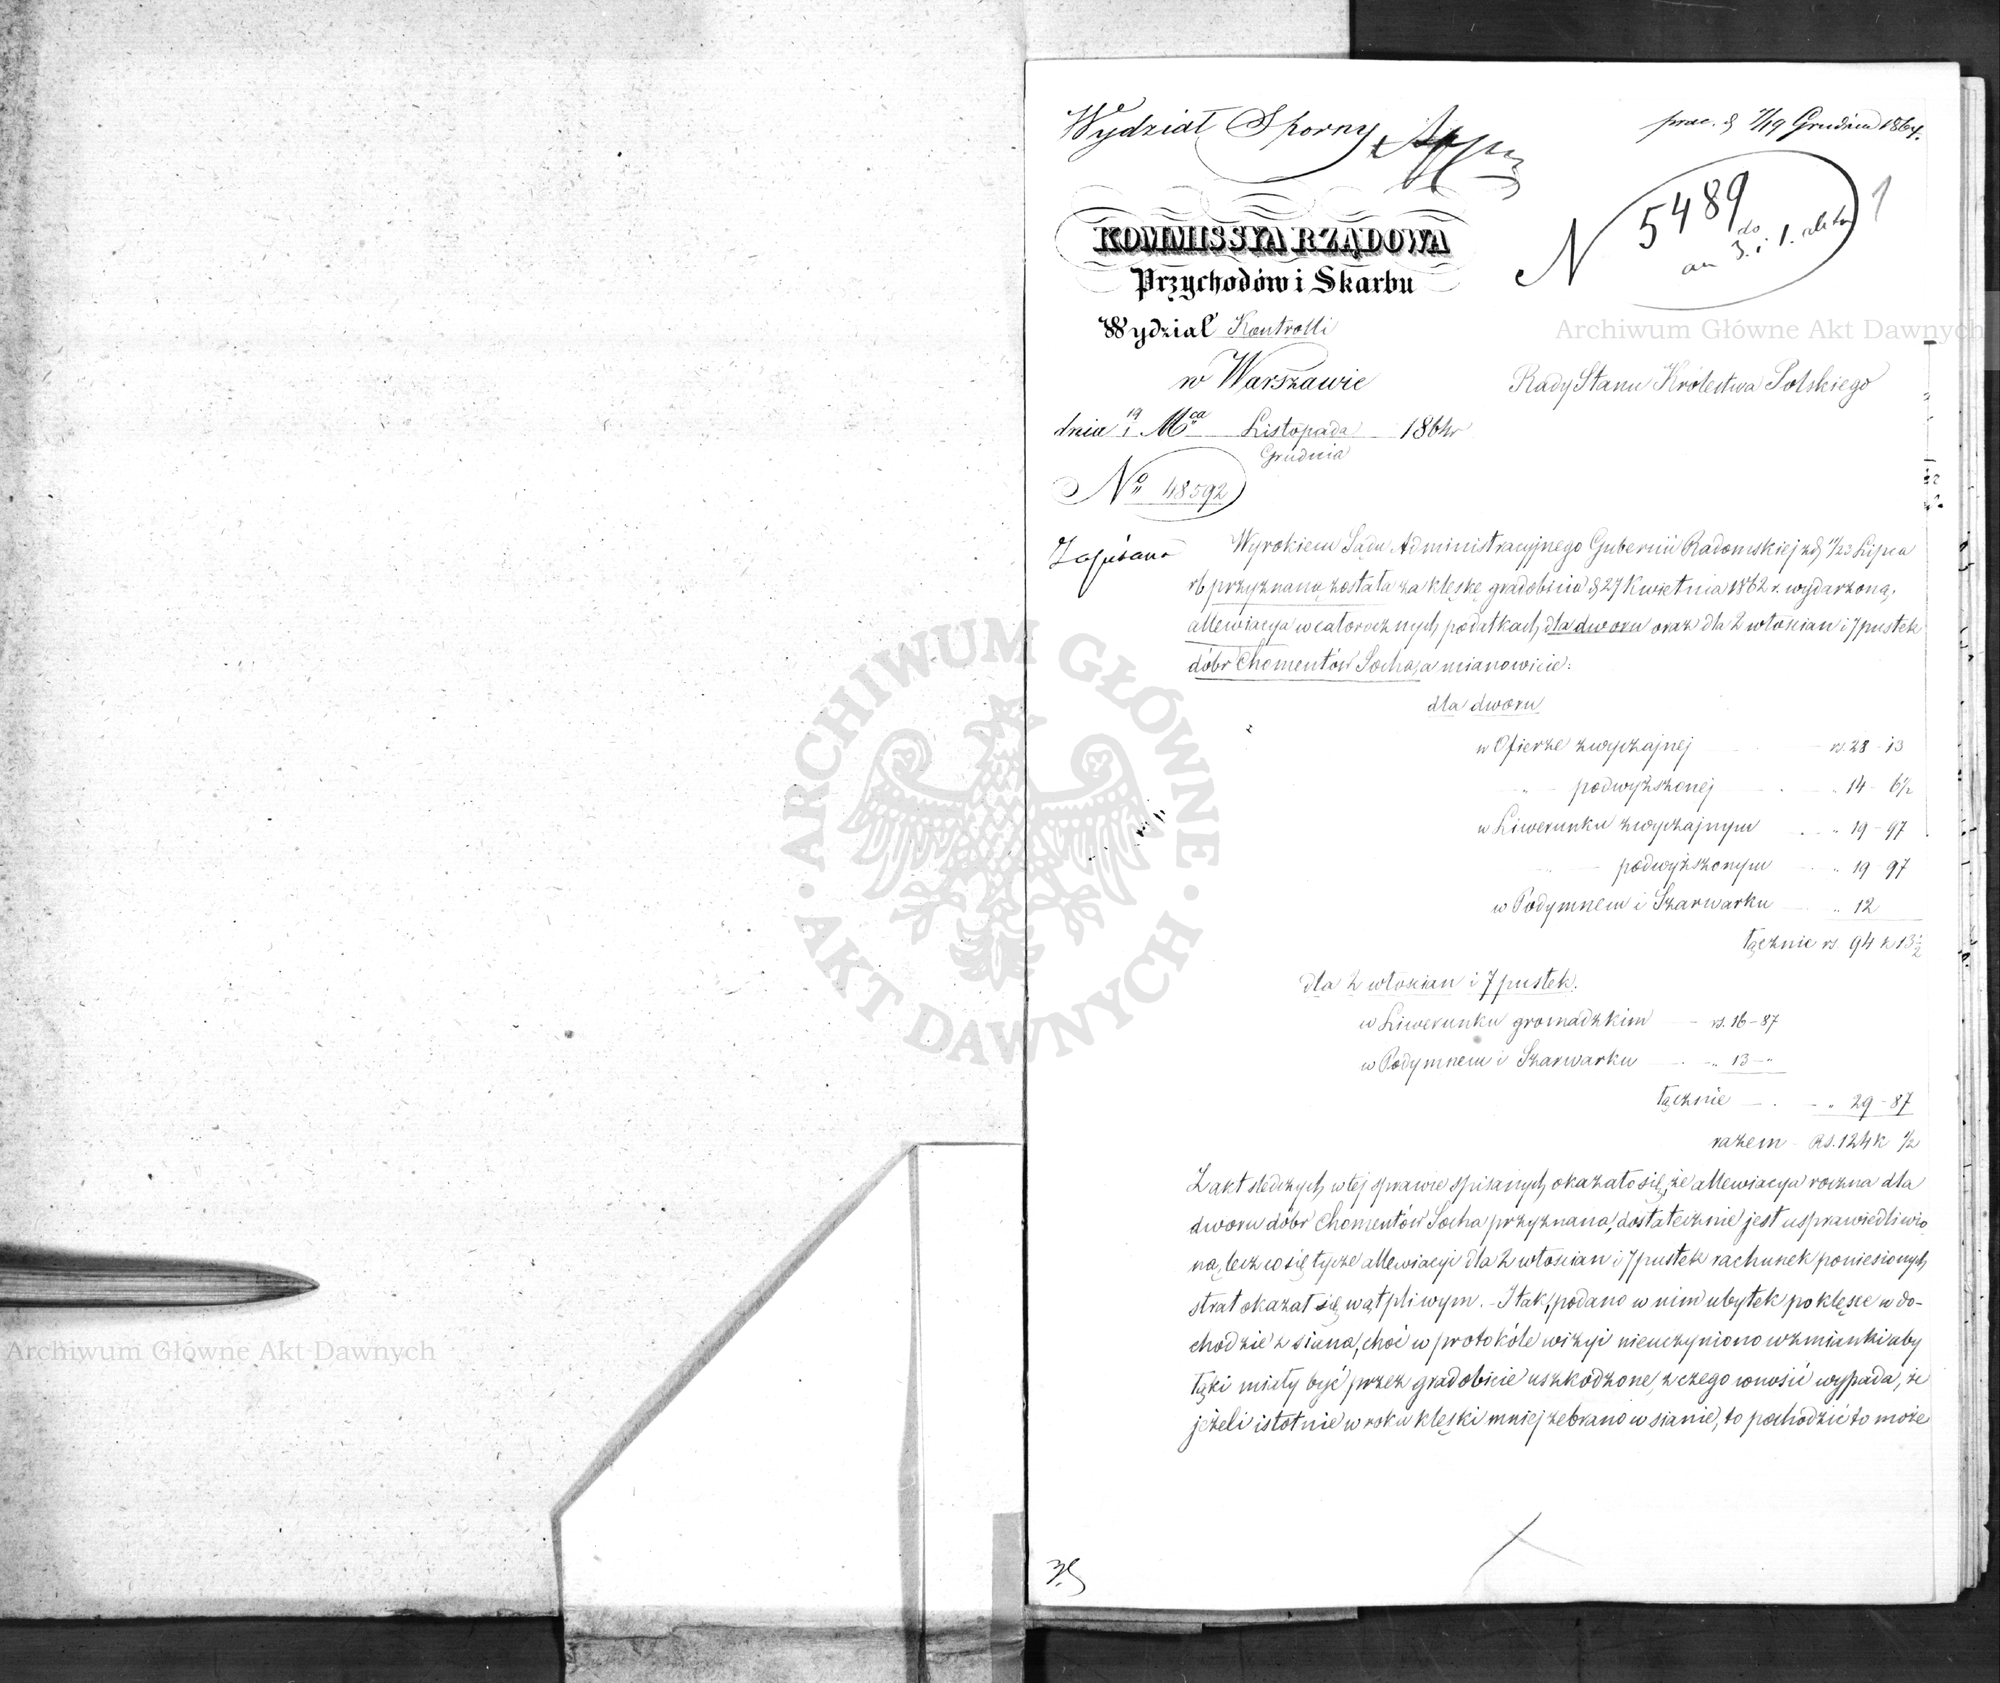 Wydział Sporny
prez. d 7/19 Grudnia 1864.
N 5489
do
an 3. i 1. alleg
1
KOMMISSYA RZĄDOWA
Przychodów i Skarbu
Wydział Kontrolli
w Warszawie
Rady Stanu Królestwa Polskiego
dnia 19/1 Mca Listopada 1864 r
Grudnia
No 48592
Zapisano
Wyrokiem Sądu Administracyjnego Gubernii Radomskiej z d 11/23 Lipca
rb przyznaną została za klęskę gradobicia d 27 Kwietnia 1862 r. wydarzoną,
allewiacya w całorocznych podatkach dla dworu oraz dla 2 włościan i 7 pustek
dóbr Chomentów Socha, a mianowicie:
dla dworu
w Ofierze zwyczajnej rs. 28 - 13
" podwyższonej " 14 - 6½
w Liwerunku zwyczajnym " 19 - 97
podwyższonym " 19 97
w Podymnem i Szarwarku " 12
łącznie rs. 94 k 13½
dla 2 włościan i 7 pustek.
w Liwerunku gromadzkim - rs. 16 - 87
w Podymnem i Szarwarku " 13 - "
łącznie - " 29 - 87
razem - Rs. 124 k ½
Z akt śledczych w tej sprawie spisanych okazało się, że allewiacya roczna dla
dworu dóbr Chomentów Socha przyznana, dostatecznie jest usprawiedliwio
ną, lecz co się tycze allewiacyi dla 2 włościan i 7 pustek rachunek poniesionych
strat okazał się wątpliwym. - I tak, podano w nim ubytek po klęsce w do-
chodzie z siana, choć w protokóle wizyi nieuczyniono wzmianki aby
łąki miały być przez gradobicie uszkodzone, z czego wnosić wypada, że
jeżeli istotnie w roku klęski mniej zebrano w sianie, to pochodzić to może
Archiwum Główne Akt Dawnych
Archiwum Główne Akt Dawnych
ARCHIWUM GŁÓWNE AKT DAWNYCH